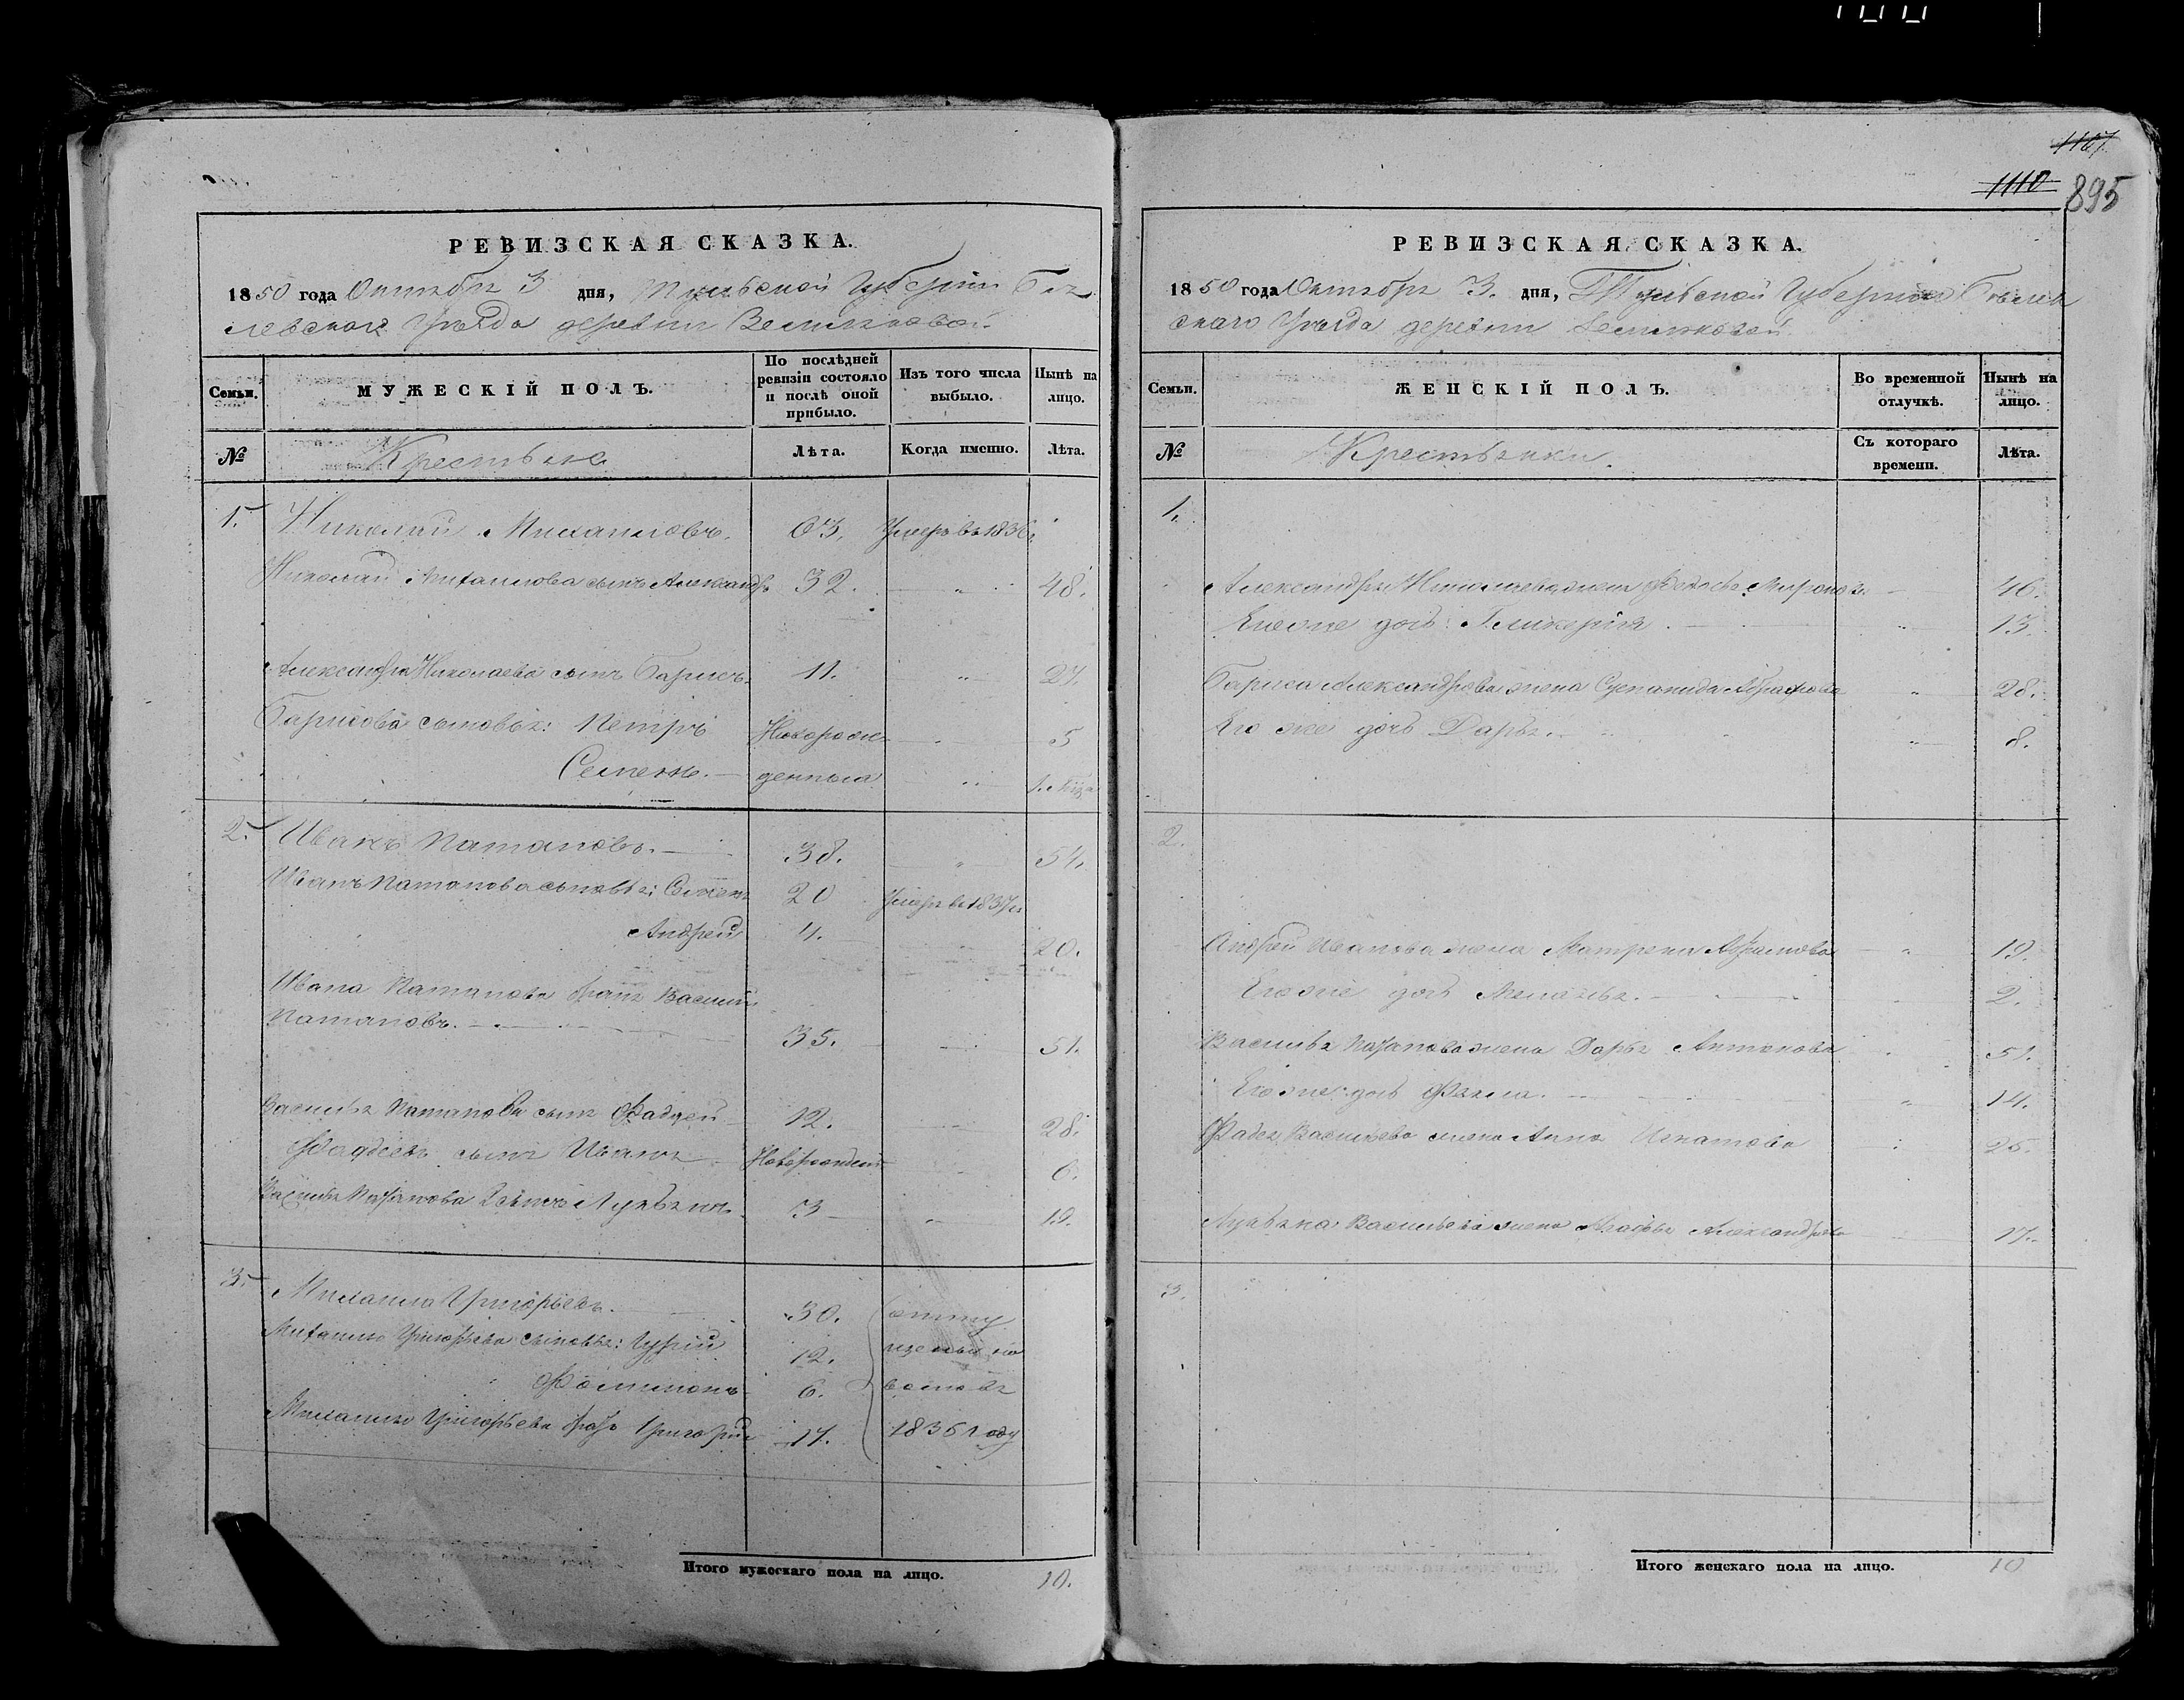 РЕВИЗСКАЯ СКАЗКА.
1850 года Октября 3 дня, Тульской Губернiи Бѣ
левскаго Уѣзда деревни
Семьи.
МУЖЕСКІЙ ПОЛЪ.
По послѣдней ревизіи состояло и послѣ оной прибыло.
Изъ того числа выбыло.
Нынѣ на лицо.
№
Крестьяне
Лѣта.
Когда именно.
Лѣта.
1. Николай Михаиловъ. 63. Умеръ въ 1836
Николай Михаилова сынъ Александръ 32. 48.
Александра Николаева сынъ Барисъ. 11. 27.
Барисова сыновья: Петръ Новорож 5
Семенъ. денныя 1.
2. Иванъ Патаповъ. 38. 54.
Иванъ Патапова сыновья: Семенъ 20 Умеръ въ 1837
Андрей 4. 20.
Ивана Патапова братъ Василій
Патаповъ. 35. 51.
Василья Патапова сынъ Фаддей 12. 28.
Фаддеевъ сынъ Иванъ 6.
Василья Патапова 2 сынъ Лукьянъ 3 19.
3. Михаило Григорьевъ. 30. отпу
Михаило Григорьева сыновья: Гурій 12. щены на
Филимонъ 6. волю въ
Михаило Григорьева братъ Григорій 17. 1835 году
Итого мужескаго пола на лицо. 10.
1167
1110 895
РЕВИЗСКАЯ СКАЗКА.
1850 года Октября 3. дня, Тульской Губернiи Бѣлев
скаго Уѣзда деревни
Семьи.
ЖЕНСКІЙ ПОЛЪ.
Во временной отлучкѣ.
Нынѣ на лицо.
№
Крестьянки.
Съ котораго времени.
Лѣта.
1.
Александра Николаева жена Федосья Миронова 46.
Его же дочь Гликерія. 13.
Бариса Александрова жена Степанида 28.
Его же дочь Дарья. 8.
2.
Андрей Иванова жена Матрена 19.
Его же дочь 2.
Василья Патапова жена Дарья Антонова 51.
Его же дочь Фекла. 14.
Фадея Васильева жена Анна Игнатова 25.
Лукьяна Васильева жена Агафья Александрова 17.
3.
Итого женскаго пола на лицо. 10